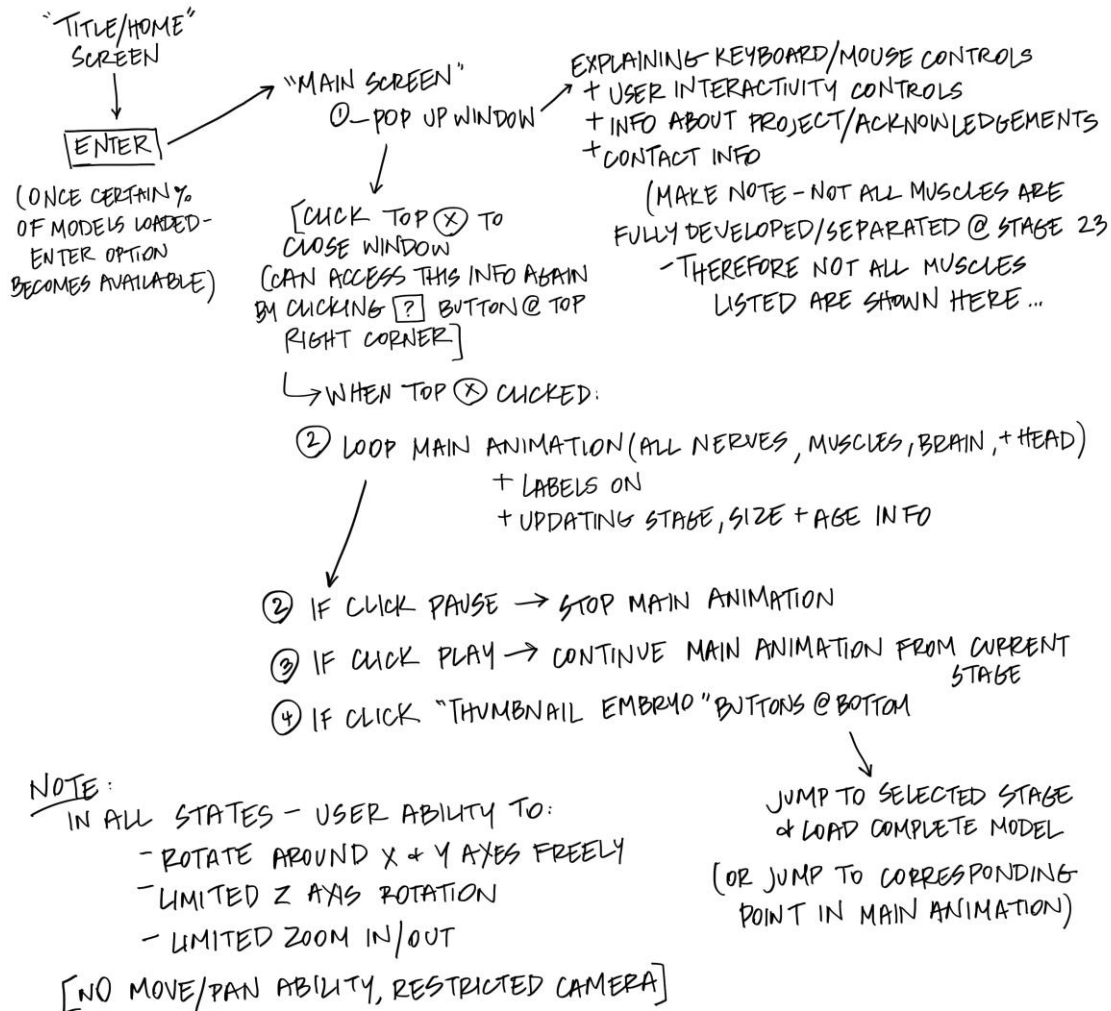 "TITLE/HOME"
SCREEN
ENTER
(ONCE CERTAIN %
OF MODELS LOADED-
ENTER OPTION
BECOMES AVAILABLE)
"MAIN SCREEN"
① - POP UP WINDOW
EXPLAINING KEYBOARD/MOUSE CONTROLS
+ USER INTERACTIVITY CONTROLS
+ INFO ABOUT PROJECT/ACKNOWLEDGEMENTS
+ CONTACT INFO
(MAKE NOTE - NOT ALL MUSCLES ARE
FULLY DEVELOPED/SEPARATED @ STAGE 23
- THEREFORE NOT ALL MUSCLES
LISTED ARE SHOWN HERE...
[CLICK TOP ⓧ TO
CLOSE WINDOW
(CAN ACCESS THIS INFO AGAIN
BY CLICKING [?] BUTTON @ TOP
RIGHT CORNER]
↳ WHEN TOP ⓧ CLICKED:
② LOOP MAIN ANIMATION (ALL NERVES, MUSCLES, BRAIN, + HEAD)
+ LABELS ON
+ UPDATING STAGE, SIZE + AGE INFO
② IF CLICK PAUSE → STOP MAIN ANIMATION
③ IF CLICK PLAY → CONTINUE MAIN ANIMATION FROM CURRENT
STAGE
④ IF CLICK "THUMBNAIL EMBRYO" BUTTONS @ BOTTOM
JUMP TO SELECTED STAGE
& LOAD COMPLETE MODEL
(OR JUMP TO CORRESPONDING
POINT IN MAIN ANIMATION)
NOTE:
IN ALL STATES - USER ABILITY TO:
- ROTATE AROUND X & Y AXES FREELY
- LIMITED Z AXIS ROTATION
- LIMITED ZOOM IN/OUT
[NO MOVE/PAN ABILITY, RESTRICTED CAMERA]